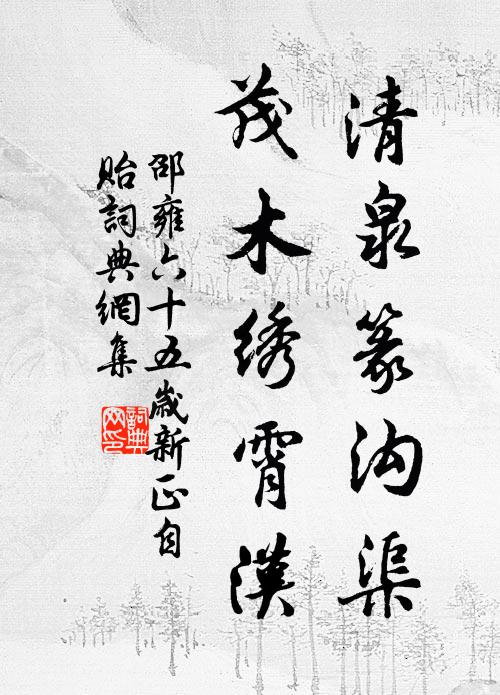 清泉篆沟渠
茂木绣霄汉
邵雍六十五岁新正自
贻詞典網集
詞典网印